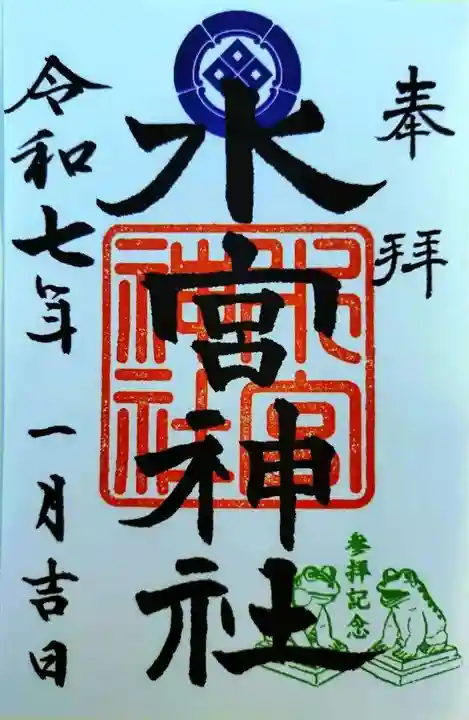 奉拝
水宮神社
水宮
神社
参拝記念
令和七年 一月吉日